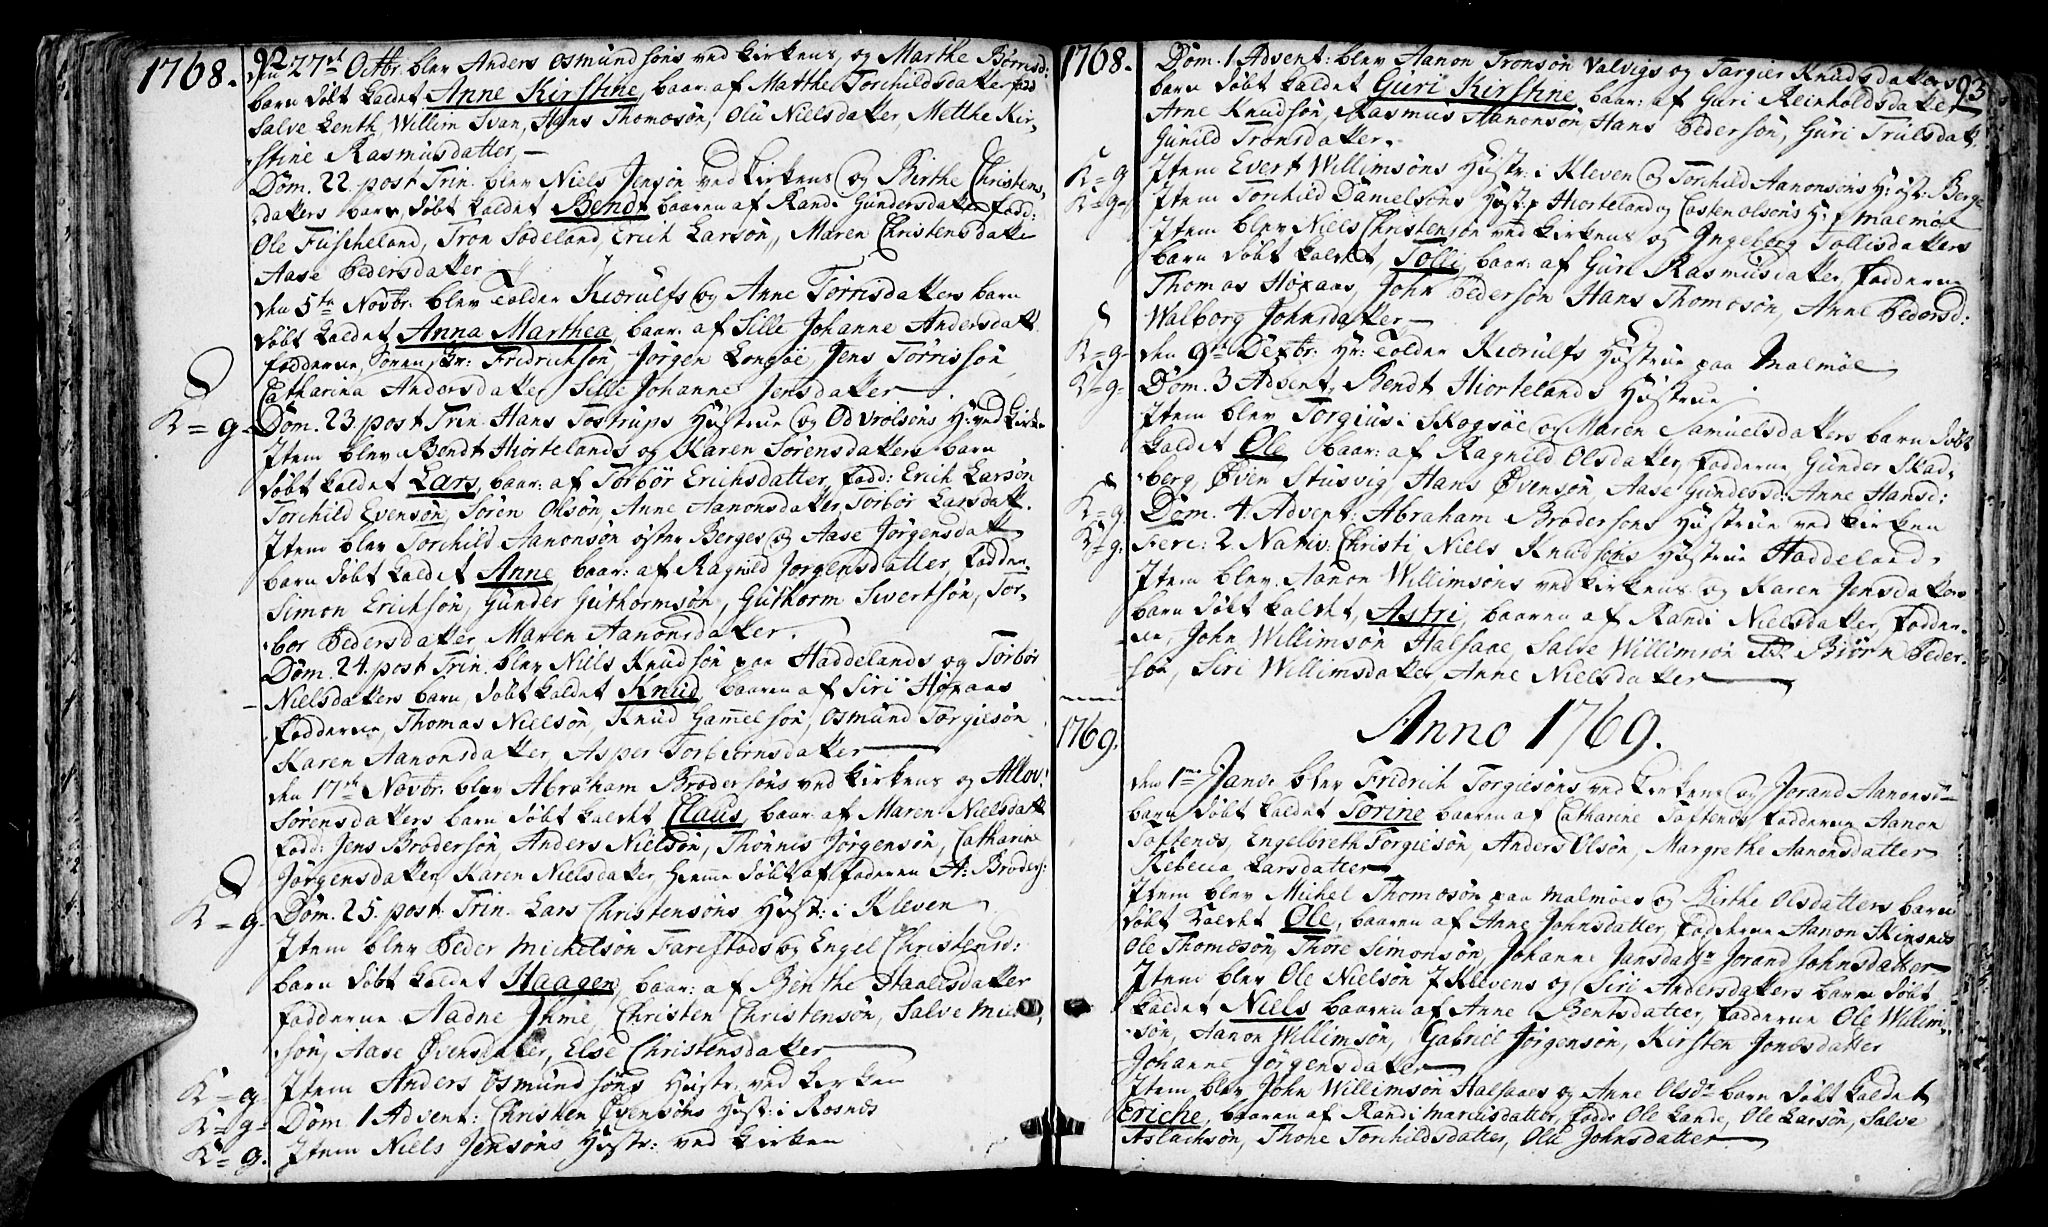 1768.
92
den 27de Octbr. blev Anders Osmundsøns ved Kirkens og Marthe Børnisd:
barn døbt kaldet Anne Kirstine, baar: af Marthe Torchildsdatter fad
Salve Lenth, Willim Svan, Hans Thomæsøn, Olu Nielsdatter Metthe Kir-
stine Rasmusdatter,
Dom. 22. post Trin. blev Niels Jensøn ved Kirkens og Birthe Christens-
datters barn, døbt kaldet Bendt baaren af Randi Gundersdatter fadd:
Ole Fuscheland, Tron Sodeland, Erich Larsøn, Maren Christensdatter
Aase Pedersdatter
den 5te Novbr. blev Tolder Kierulfs og Anne Torrisdatters barn
døbt kaldet Anna Marthea, baar: af Sille Johanne Andersdatt.
fadderne, Soren, Hr: Fridrichsøn Jørgen Longøe, Jens Torrissøn
Catharina Andersdatter, Sille Johanne Jensdatter
K=g. Dom. 23. post Trin. Hans Tostrups Hustrue og Od Vrolsøns H: ved Kirke
Item blev Bendt Hiortelands og Karen Sørensdatters barn
døbt kaldet Lars, baar: af Torbor Erichsdatter, fadd: Erich Larsøn
Torchild Evensøn, Søren Olsøn, Anne Aanonsdatter, Torbor Larsdatt.
Item blev Torchild Aanonsøn øster Berges og Aase Jørgensdatt
barn døbt kaldet Anne baar: af Ragnild Jørgensdatter, fadder.
Simon Erichsøn, Gunder Guthormsøn, Guthorm Sivertsøn, Tor-
bor Pedersdatter Maren Aanonsdatter.
Dom. 24. post Trin. blev Niels Knudsøn paa Haddelands og Torbor
Nielsdatters barn, døbt kaldet Knud, baaren af Siri Høxaas
fadderne, Thomas Nielsøn, Knud Gamelsøn, Osmund Torgiesøn
Karen Aanonsdatter, Asper Torbiornsdatter
den 17de Novbr. blev Abraham Brodersøns ved Kirkens og Allov:
Sørensdatters barn døbt kaldet Claus, baar: af Maren Nielsdatt
fadd: Jens Brodersøn, Anders Nielsøn, Thonnis Jørgensøn, Catharine
Jørgensdatter, Karen Nielsdatter, hieme døbt af faderen A: Broders:
K=g. Dom. 25. post Trin. Lars Christensøns Hust: i Kleven
Item blev Peder Michelsøn Farestads og Engel Christensd:
barn døbt kaldet Haagen, baar: af Birthe Haalesdatter
fadderne Aadne Ihme, Christen Christensøn, Salve Mich-
søn, Aase Øvensdatter, Else Christensdatter
K=g Item Anders Osmundsøns Hustr: ved Kirken
K=g- Dom. 1 Advent: Christen Øvensøns Hust: i Rosnæs
K=g. Item Niels Jensøns Hustr: ved Kirken
1768.
93
Dom. 1 Advent: blev Aanon Tronsøn Valvigs og Targier Knudsdatters
barn døbt kaldet Guri Kirstine, baar: af Guri Reinholdsdatter,
Arne Knudsøn, Rasmus Aanonsøn, Hans Pedersøn, Guri Trulsdatt,
Gunild Tronsdatter.
K=g Item Evert Willimsøns Hustr: i Kleven og Torchild Aanonsøns H: øst. Berge
K=g- Item Torchild Danielsøns Hust: Hiorteland og Casten Olsøns H: Malmøe
Item blev Niels Christensøn ved Kirkens og Ingeborg Tollisdatters
barn døbt kaldet, Tolli, baar: af Guri Rasmusdatter, fadderne
Thomas Høxaas, John Pedersøn Hans Thomæsøn, Anne Pedersd:
Walborg Johnsdatter,
K=g- den 9de Dexbr: Hr: Tolder Kierulfs Hustrue paa Malmøe
K=g- Dom. 3 Advent, Bendt Hiortelands Hustrue
Item blev Torgius i Skogsøe og Maren Samuelsdatters barn døbt
kaldet Ole baar: af Ragnild Olsdatter, fadderne Gunder Skad-
berg, Øven Stusvig, Hans Øvensøn, Aase Gundersd: Anne Hansd:
K=g Dom. 4. Advent: Abraham Brodersøns Hustrue ved Kirken
K=g. Feri: 2. Nativ: Christi Niels Knudsøns Hustrue Haddeland.
Item blev Aanon Willimsøns ved Kirkens og Karen Jensdatters
barn døbt kaldet, Astri, baaren af Randi Nielsdatter, fadder-
ne, John Willimsøn Halsaae, Salve Willimsøn Biørn Peder-
søn, Siri Willimsdatter, Anne Nielsdatter
1769.
Anno 1769.
den 1me Janv: blev Fridrich Torgiesøns ved Kirkens og Jorand Aanonsd
barn døbt kaldet Torine baaren af Catharine Toftenæs, fadderne Aanon
Toftenæs, Engelbreth Torgiesøn, Anders Olsøn, Margrethe Aanonsdatter
Rebecca Larsdatter
Item blev Michel Thomæsøn paa Malmøes og Birthe Olsdatters barn
døbt kaldet Ole, baaren af Anne Johnsdatter, fadderne Aanon Skinsnæs
Ole Thomæsøn, Thore Simonsøn, Johanne Jansdattr Jorand Johnsdatter
Item blev Ole Nielsøn I Klevens og Siri Andersdatters barn døbt
kaldet Niels baaren af Anne Bentsdatter, fadderne Ole Willim-
søn, Aanon Willimsøn, Gabriel Jørgensøn, Kirsten Jonæsdatter
Johanne Jørgensdatter
Item blev John Willimsøn Halsaaes og Anne Olsdr. barn døbt kaldet
Eriche, baaren af Randi Marcusdatter, fadd: Ole Lande, Ole Larsøn, Salve
Aslachsøn, Thore Torchildsdatter, Olu Johnsdatter